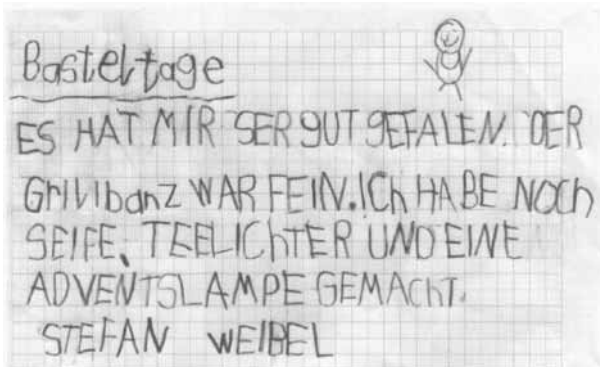 Basteltage
ES HAT MIR SER GUT GEFALEN. DER
Grilibanz WAR FEIN. ICh HABE NOCh
SEIFE, TEELICHTER UND EINE
ADVENTSLAMPE GEMACHT.
STEFAN WEIBEL